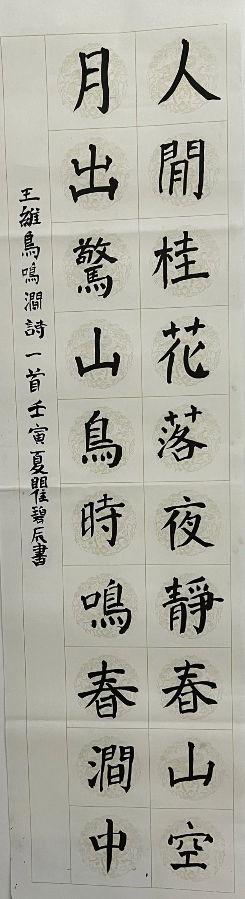 人閒桂花落夜靜春山空
月出驚山鳥時鳴春澗中
王維鳥鳴澗詩一首壬寅夏瞿碧辰書